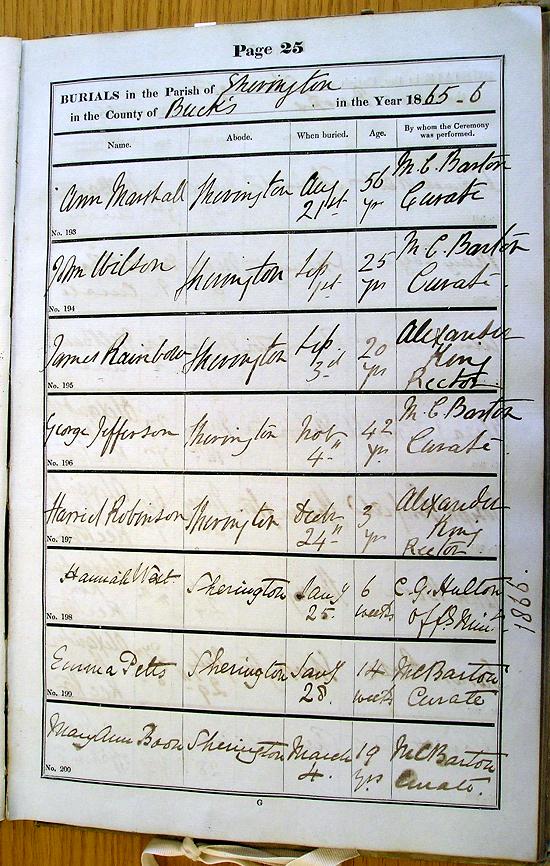 Page 25
BURIALS in the Parish of Sherington
in the County of Buck's in the Year 1865-6
Name. Abode. When buried. Age. By whom the Ceremony was performed.
Ann Marshall Sherington Aug 21st 56 yr M. C. Barton Curate
No. 193
John Wilson Sherington Sep 1st 25 yrs M. C. Barton Curate
No. 194
James Rainbow Sherington Sep. 3d 20 yrs Alexander King Rector
No. 195
George Jefferson Sherington Nov 4th 42 yrs M. C. Barton Curate
No. 196
Harriet Robinson Sherington Decbr 24th 3 yrs Alexander King Rector
No. 197
Hannah West Sherington Jany 25. 6 weeks C. G. Hulton Offg Min.
1866.
No. 198
Emma Petts Sherington Jany 28. 14 weeks M C Barton Curate
No. 199
Mary Ann Boon Sherington March 4. 19 yrs M C Barton Curate.
No. 200
G